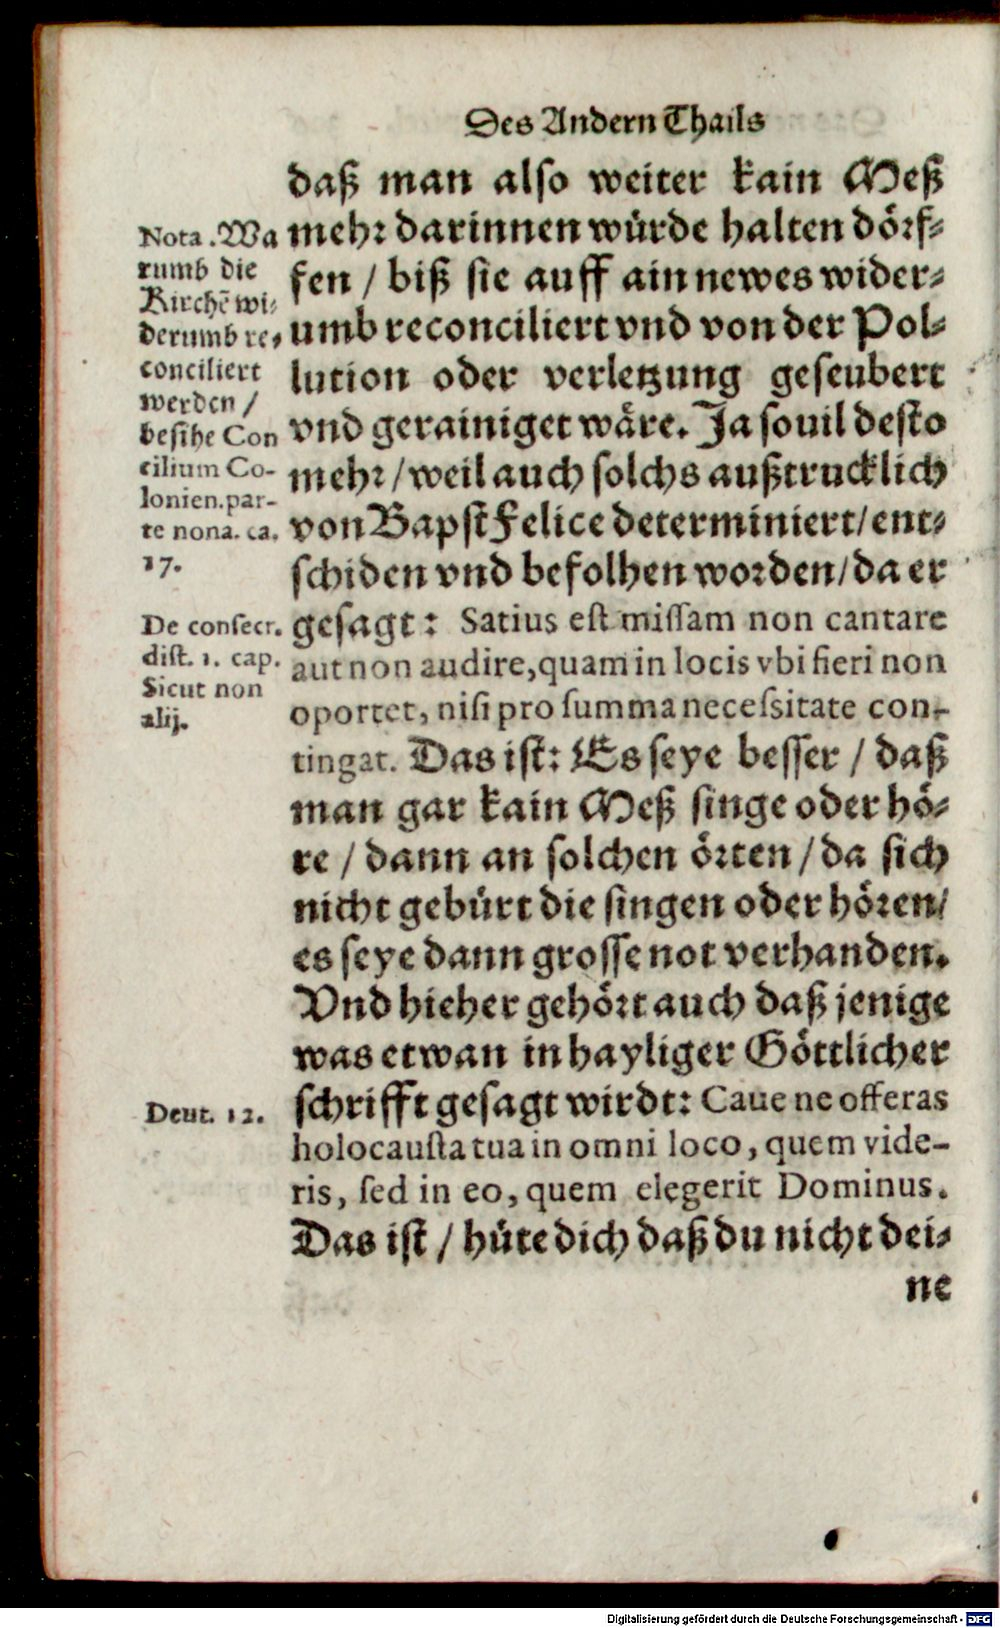 Des Andern Thails
daß man also weiter kain Meß
mehr darinnen würde halten dörf-
fen / biß sie auff ain newes wider-
umb reconciliert vnd von der Pol-
lution oder verletzung geseubert
vnd gerainiget wäre. Ja souil desto
mehr / weil auch solchs außtrucklich
von Bapst Felice determiniert / ent-
schiden vnd befolhen worden / da er
gesagt: Satius est missam non cantare
aut non audire, quam in locis vbi fieri non
oportet, nisi pro summa necessitate con-
tingat. Das ist: Es seye besser / daß
man gar kain Meß singe oder hö-
re / dann an solchen örten / da sich
nicht gebürt die singen oder hören /
es seye dann grosse not verhanden.
Vnd hieher gehört auch daß jenige
was etwan in hayliger Göttlicher
schrifft gesagt wirdt: Caue ne offeras
holocausta tua in omni loco, quem vide-
ris, sed in eo, quem elegerit Dominus.
Das ist / hüte dich daß du nicht dei-
ne
Nota. Wa
rumb die
Kirchē wi-
derumb re-
conciliert
werden /
besihe Con
cilium Co-
lonien. par-
te nona. ca.
17.
De consecr.
dist. 1. cap.
Sicut non
alij.
Deut. 12.
Digitalisierung gefördert durch die Deutsche Forschungsgemeinschaft - DFG